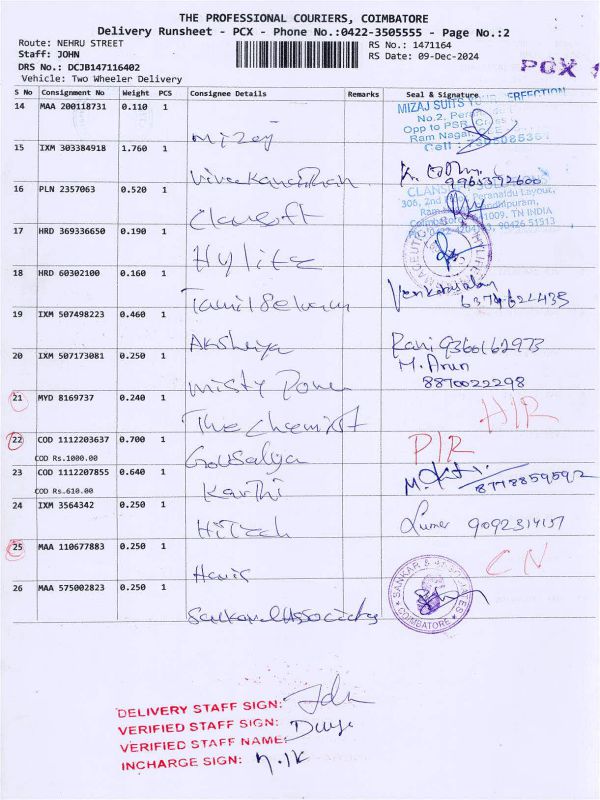 THE PROFESSIONAL COURIERS, COIMBATORE
Delivery Runsheet - PCX - Phone No.:0422-3505555 - Page No.:2
Route: NEHRU STREET RS No.: 1471164
Staff: JOHN RS Date: 09-Dec-2024
DRS No.: DCJB147116402 PCX
Vehicle: Two Wheeler Delivery
S No Consignment No Weight PCS Consignee Details Remarks Seal & Signature
14 MAA 200118731 0.110 1 Mizaj MIZAJ SUITS
No.2,
Opp to PSR
Ram Nagar,
Cell :
15 IXM 303384918 1.760 1 Vivekanandhan 9965392600
16 PLN 2357063 0.520 1 Clansoft CLANS
306, 2nd Peranaidu Layout,
Ram Gandhipuram,
Coimbatore 641009. TN INDIA
90426 51513
17 HRD 369336650 0.190 1 Hylite
18 HRD 60302100 0.160 1 Tamil Selvam Venkatasalam
6374624435
19 IXM 507498223 0.460 1 Akshaya Rani 9360162973
20 IXM 507173081 0.250 1 Misty Power M. Arun
8870022298
21 MYD 8169737 0.240 1 The Chemist H/R
22 COD 1112203637 0.700 1 Gousalya P/R
COD Rs.1000.00
23 COD 1112207855 0.640 1 Karthi 8778859592
COD Rs.610.00
24 IXM 3564342 0.250 1 Hitech 9092314157
25 MAA 110677883 0.250 1 Haris CN
26 MAA 575002823 0.250 1 Sankar & Associates SANKAR & ASSOCIATES
COIMBATORE
DELIVERY STAFF SIGN: John
VERIFIED STAFF SIGN:
VERIFIED STAFF NAME:
INCHARGE SIGN: